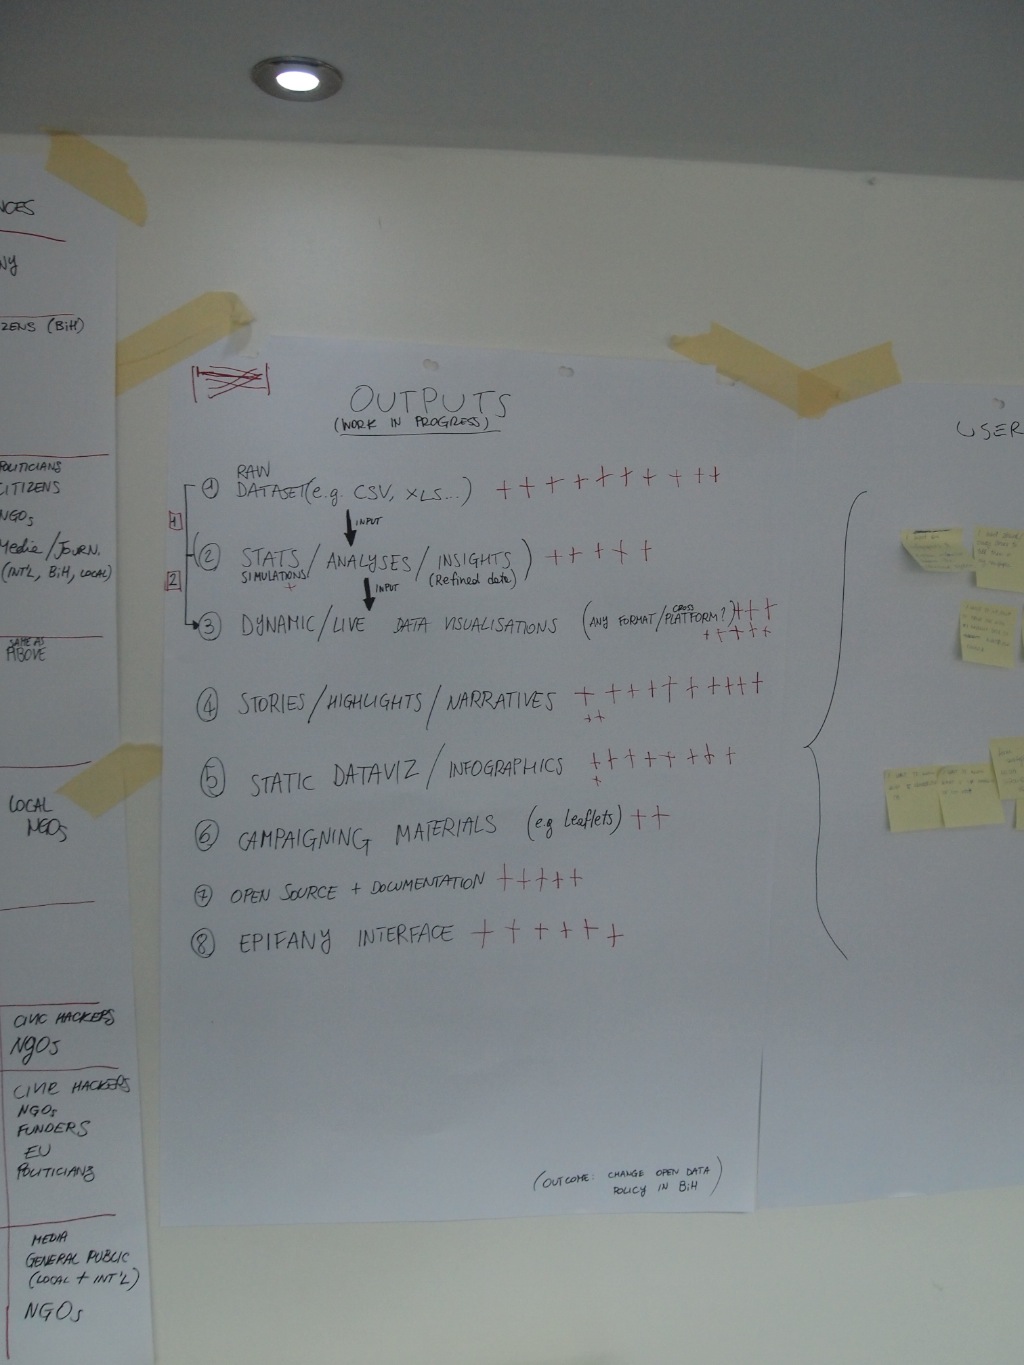 CITIZENS (BiH)
POLITICIANS
CITIZENS
NGOs
Media/JOURN.
(INT'L, BiH, LOCAL)
SAME AS
ABOVE
LOCAL
NGOs
CIVIC HACKERS
NGOs
CIVIC HACKERS
NGOs
FUNDERS
EU
POLITICIANS
MEDIA
GENERAL PUBLIC
(LOCAL + INT'L)
NGOs
OUTPUTS
(WORK IN PROGRESS)
① RAW
DATASET (e.g. CSV, XLS...) ++++++++++
1
INPUT
② STATS / ANALYSES / INSIGHTS ) +++++
SIMULATIONS/ (Refined data)
+
2
INPUT
③ DYNAMIC/LIVE DATA VISUALISATIONS (ANY FORMAT/CROSS PLATFORM?) +++
+++++
④ STORIES/HIGHLIGHTS/NARRATIVES +++++++++
++
⑤ STATIC DATAVIZ/INFOGRAPHICS +++++++
+
⑥ CAMPAIGNING MATERIALS (e.g leaflets) ++
⑦ OPEN SOURCE + DOCUMENTATION +++++
⑧ EPIFANY INTERFACE ++++++
(OUTCOME: CHANGE OPEN DATA
POLICY IN BiH)
USER